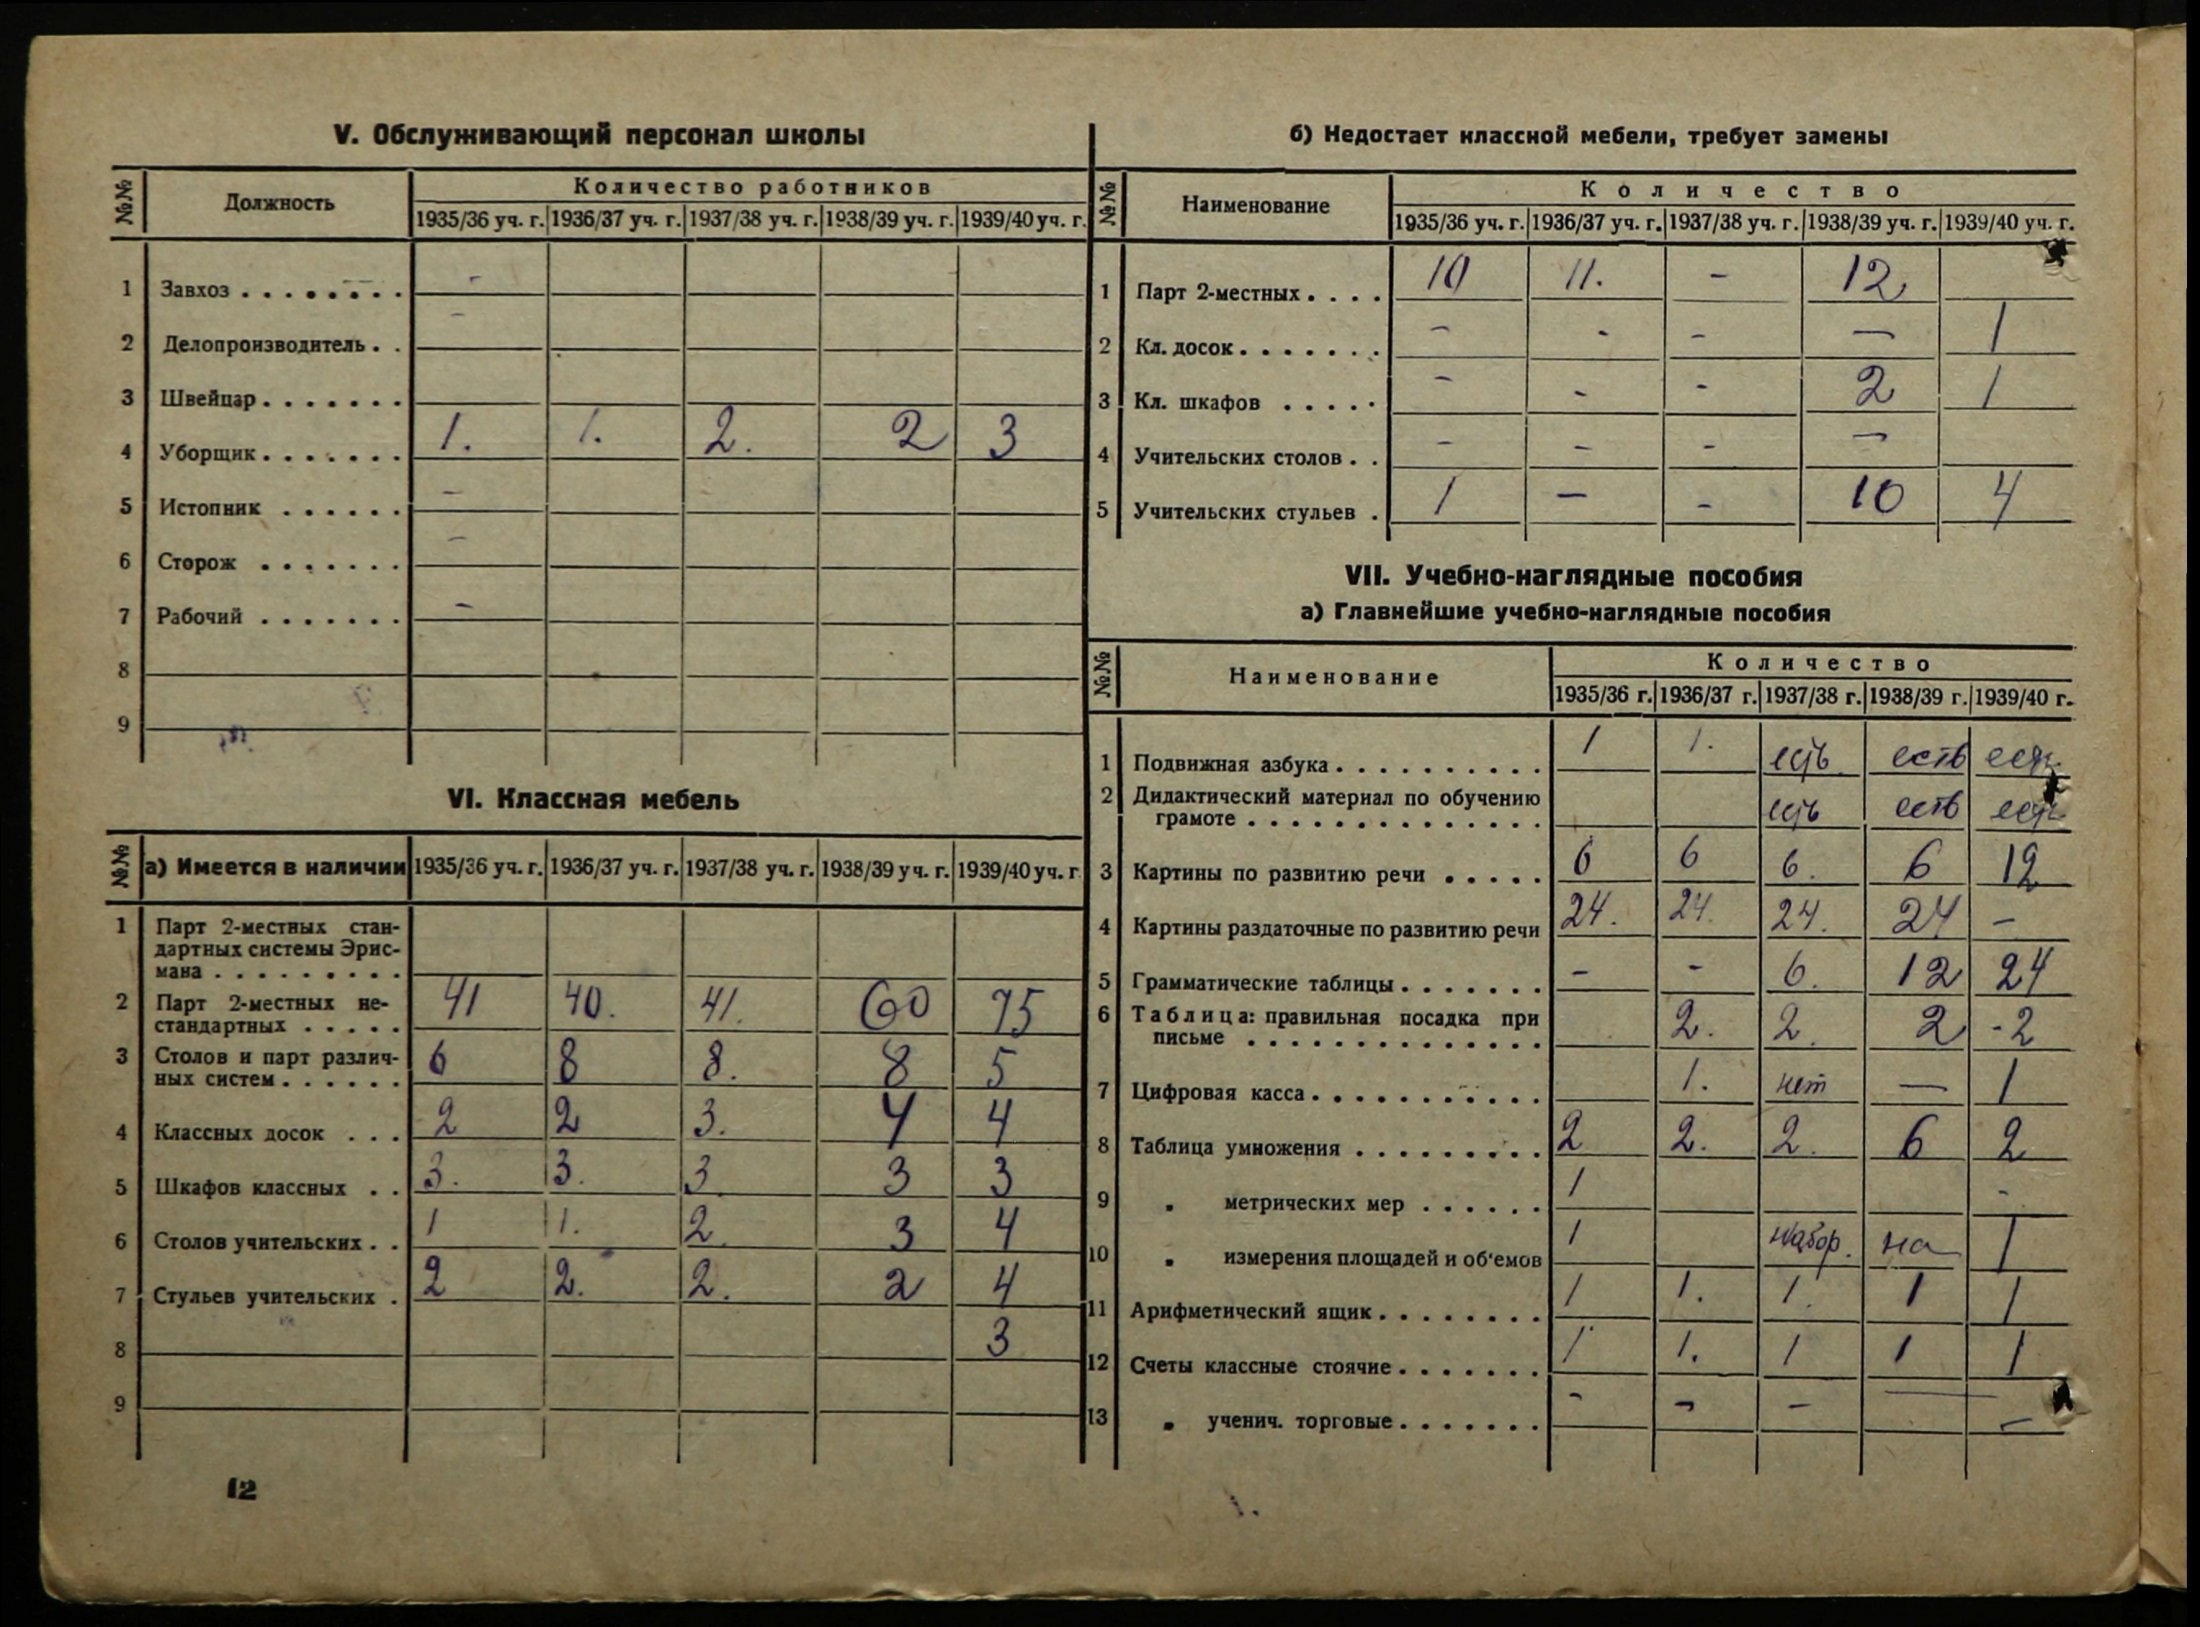 V. Обслуживающий персонал школы
№№ Должность Количество работников
1935/36 уч. г. 1936/37 уч. г. 1937/38 уч. г. 1938/39 уч. г. 1939/40 уч. г.
1 Завхоз . . . . . . . . -
2 Делопроизводитель . . -
3 Швейцар . . . . . . .
4 Уборщик . . . . . . . 1. 1. 2. 2 3
5 Истопник . . . . . . -
6 Сторож . . . . . . . -
7 Рабочий . . . . . . . -
8
9
VI. Классная мебель
№№ а) Имеется в наличии 1935/36 уч. г. 1936/37 уч. г. 1937/38 уч. г. 1938/39 уч. г. 1939/40 уч. г
1 Парт 2-местных стан-
дартных системы Эрис-
мана . . . . . . . . .
2 Парт 2-местных не-
стандартных . . . . . 41 40. 41. 60 75
3 Столов и парт различ-
ных систем . . . . . . 6 8 8. 8 5
4 Классных досок . . . 2 2 3. 4 4
5 Шкафов классных . . 3. 3. 3 3 3
6 Столов учительских . . 1 1. 2. 3 4
7 Стульев учительских . 2 2. 2. 2 4
8 3
9
12
б) Недостает классной мебели, требует замены
№№ Наименование Количество
1935/36 уч. г. 1936/37 уч. г. 1937/38 уч. г. 1938/39 уч. г. 1939/40 уч. г.
1 Парт 2-местных . . . . 10 11. - 12
2 Кл. досок . . . . . . . - - - — 1
3 Кл. шкафов . . . . . - - - 2 1
4 Учительских столов . . - - - —
5 Учительских стульев . 1 — - 10 4
VII. Учебно-наглядные пособия
а) Главнейшие учебно-наглядные пособия
№№ Наименование Количество
1935/36 г. 1936/37 г. 1937/38 г. 1938/39 г. 1939/40 г.
1 Подвижная азбука . . . . . . . . . . 1 1. есть есть есть
2 Дидактический материал по обучению
грамоте . . . . . . . . . . . . . . есть есть есть
3 Картины по развитию речи . . . . . 6 6 6. 6 12
4 Картины раздаточные по развитию речи 24. 24. 24. 24 —
5 Грамматические таблицы . . . . . . . - - 6. 12 24
6 Таблица: правильная посадка при
письме . . . . . . . . . . . . . . 2. 2. 2 -2
7 Цифровая касса . . . . . . . . . . . 1. нет — 1
8 Таблица умножения . . . . . . . . . 2 2. 2. 6 2
9 „ метрических мер . . . . . . 1 -
10 „ измерения площадей и об'емов 1 набор. на 1
11 Арифметический ящик . . . . . . . . 1 1. 1. 1 1
12 Счеты классные стоячие . . . . . . . 1 1. 1 1 1
13 „ ученич. торговые . . . . . . . - - - — —